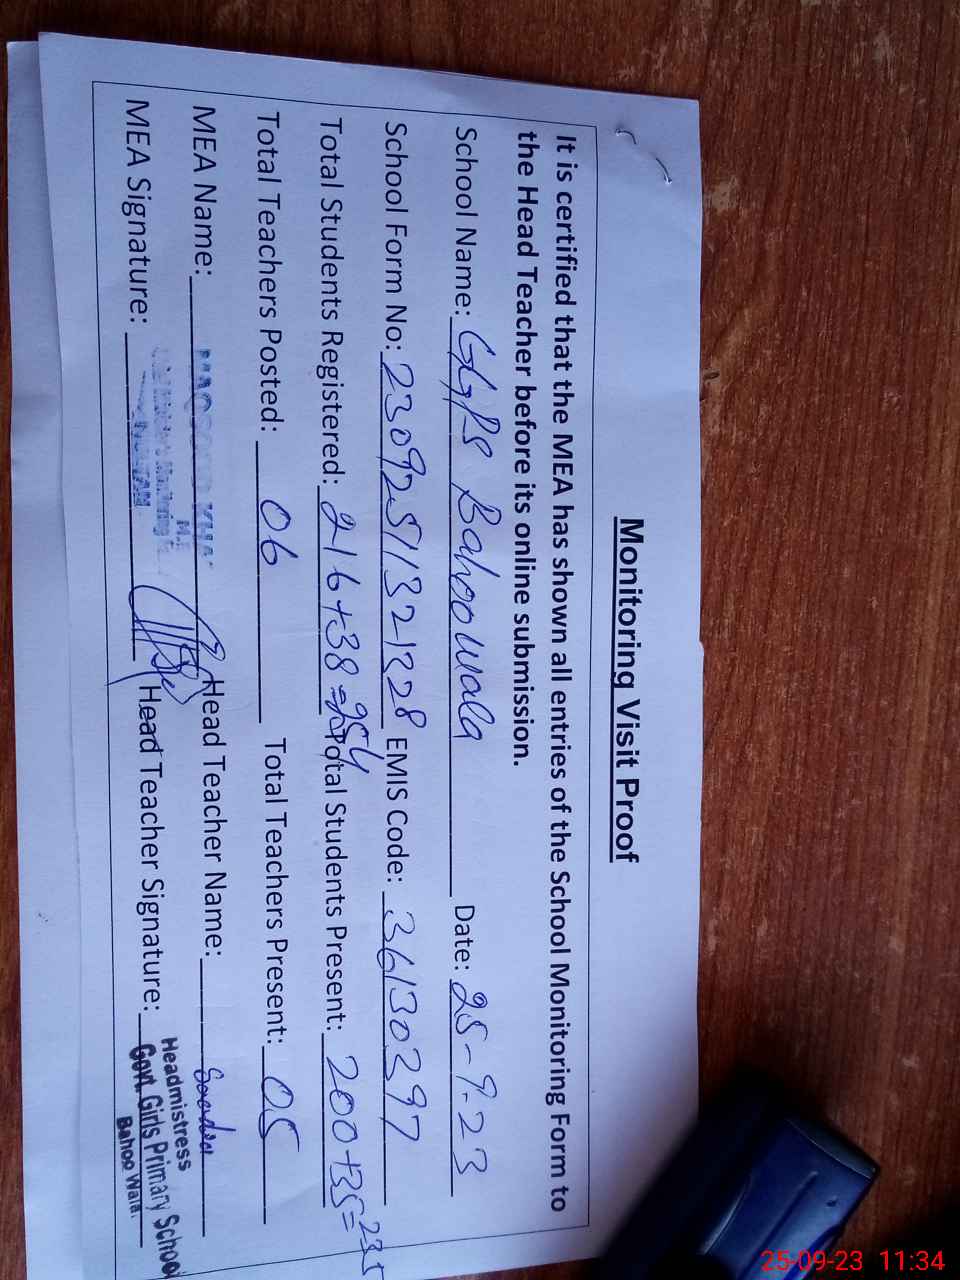 Monitoring Visit Proof
It is certified that the MEA has shown all entries of the School Monitoring Form to
the Head Teacher before its online submission.
School Name: GGPS Bahoo Wala Date: 25-9-23
School Form No: 230925113211328 EMIS Code: 36130397
Total Students Registered: 216+38=254 Total Students Present: 200+35=235
Total Teachers Posted: 06 Total Teachers Present: 05
MEA Name: Head Teacher Name:
MEA Signature: Head Teacher Signature:
Headmistress
Govt. Girls Primary School
Bahoo Wala.
25-09-23 11:34